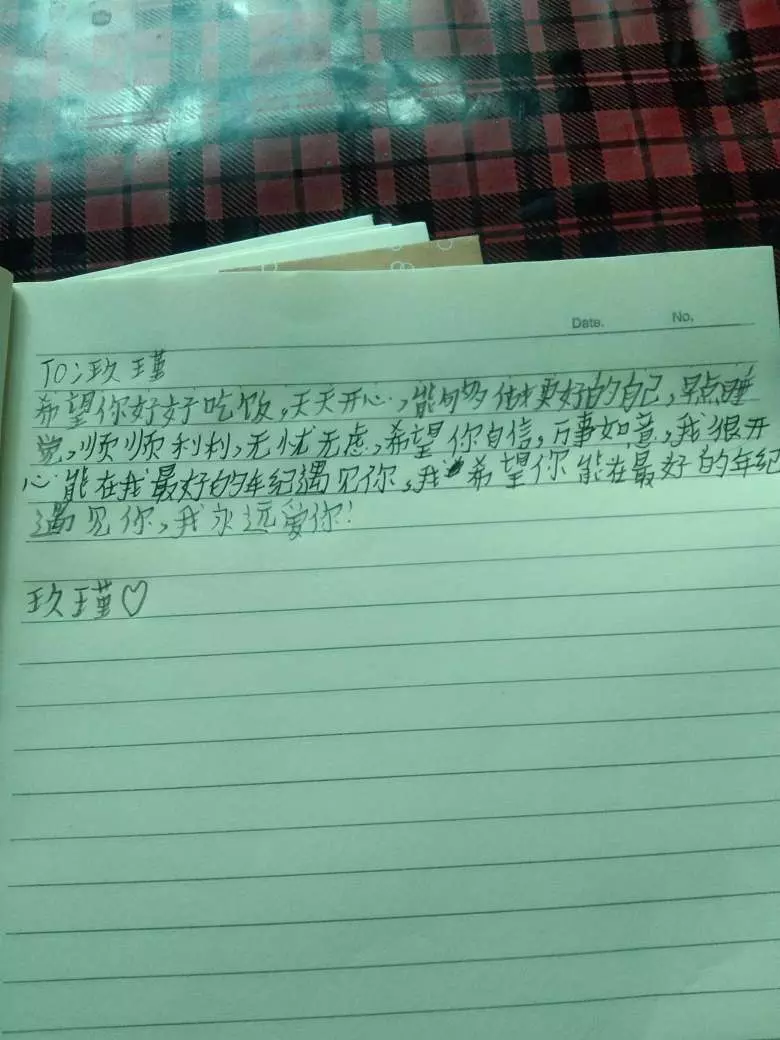 Date. No.
To:玖瑾
希望你好好吃饭,天天开心,能够做更好的自己,早点睡
觉,顺顺利利,无忧无虑,希望你自信,万事如意,我很开
心能在我最好的年纪遇见你,我希望你能在最好的年纪
遇见你,我永远爱你!
玖瑾♡